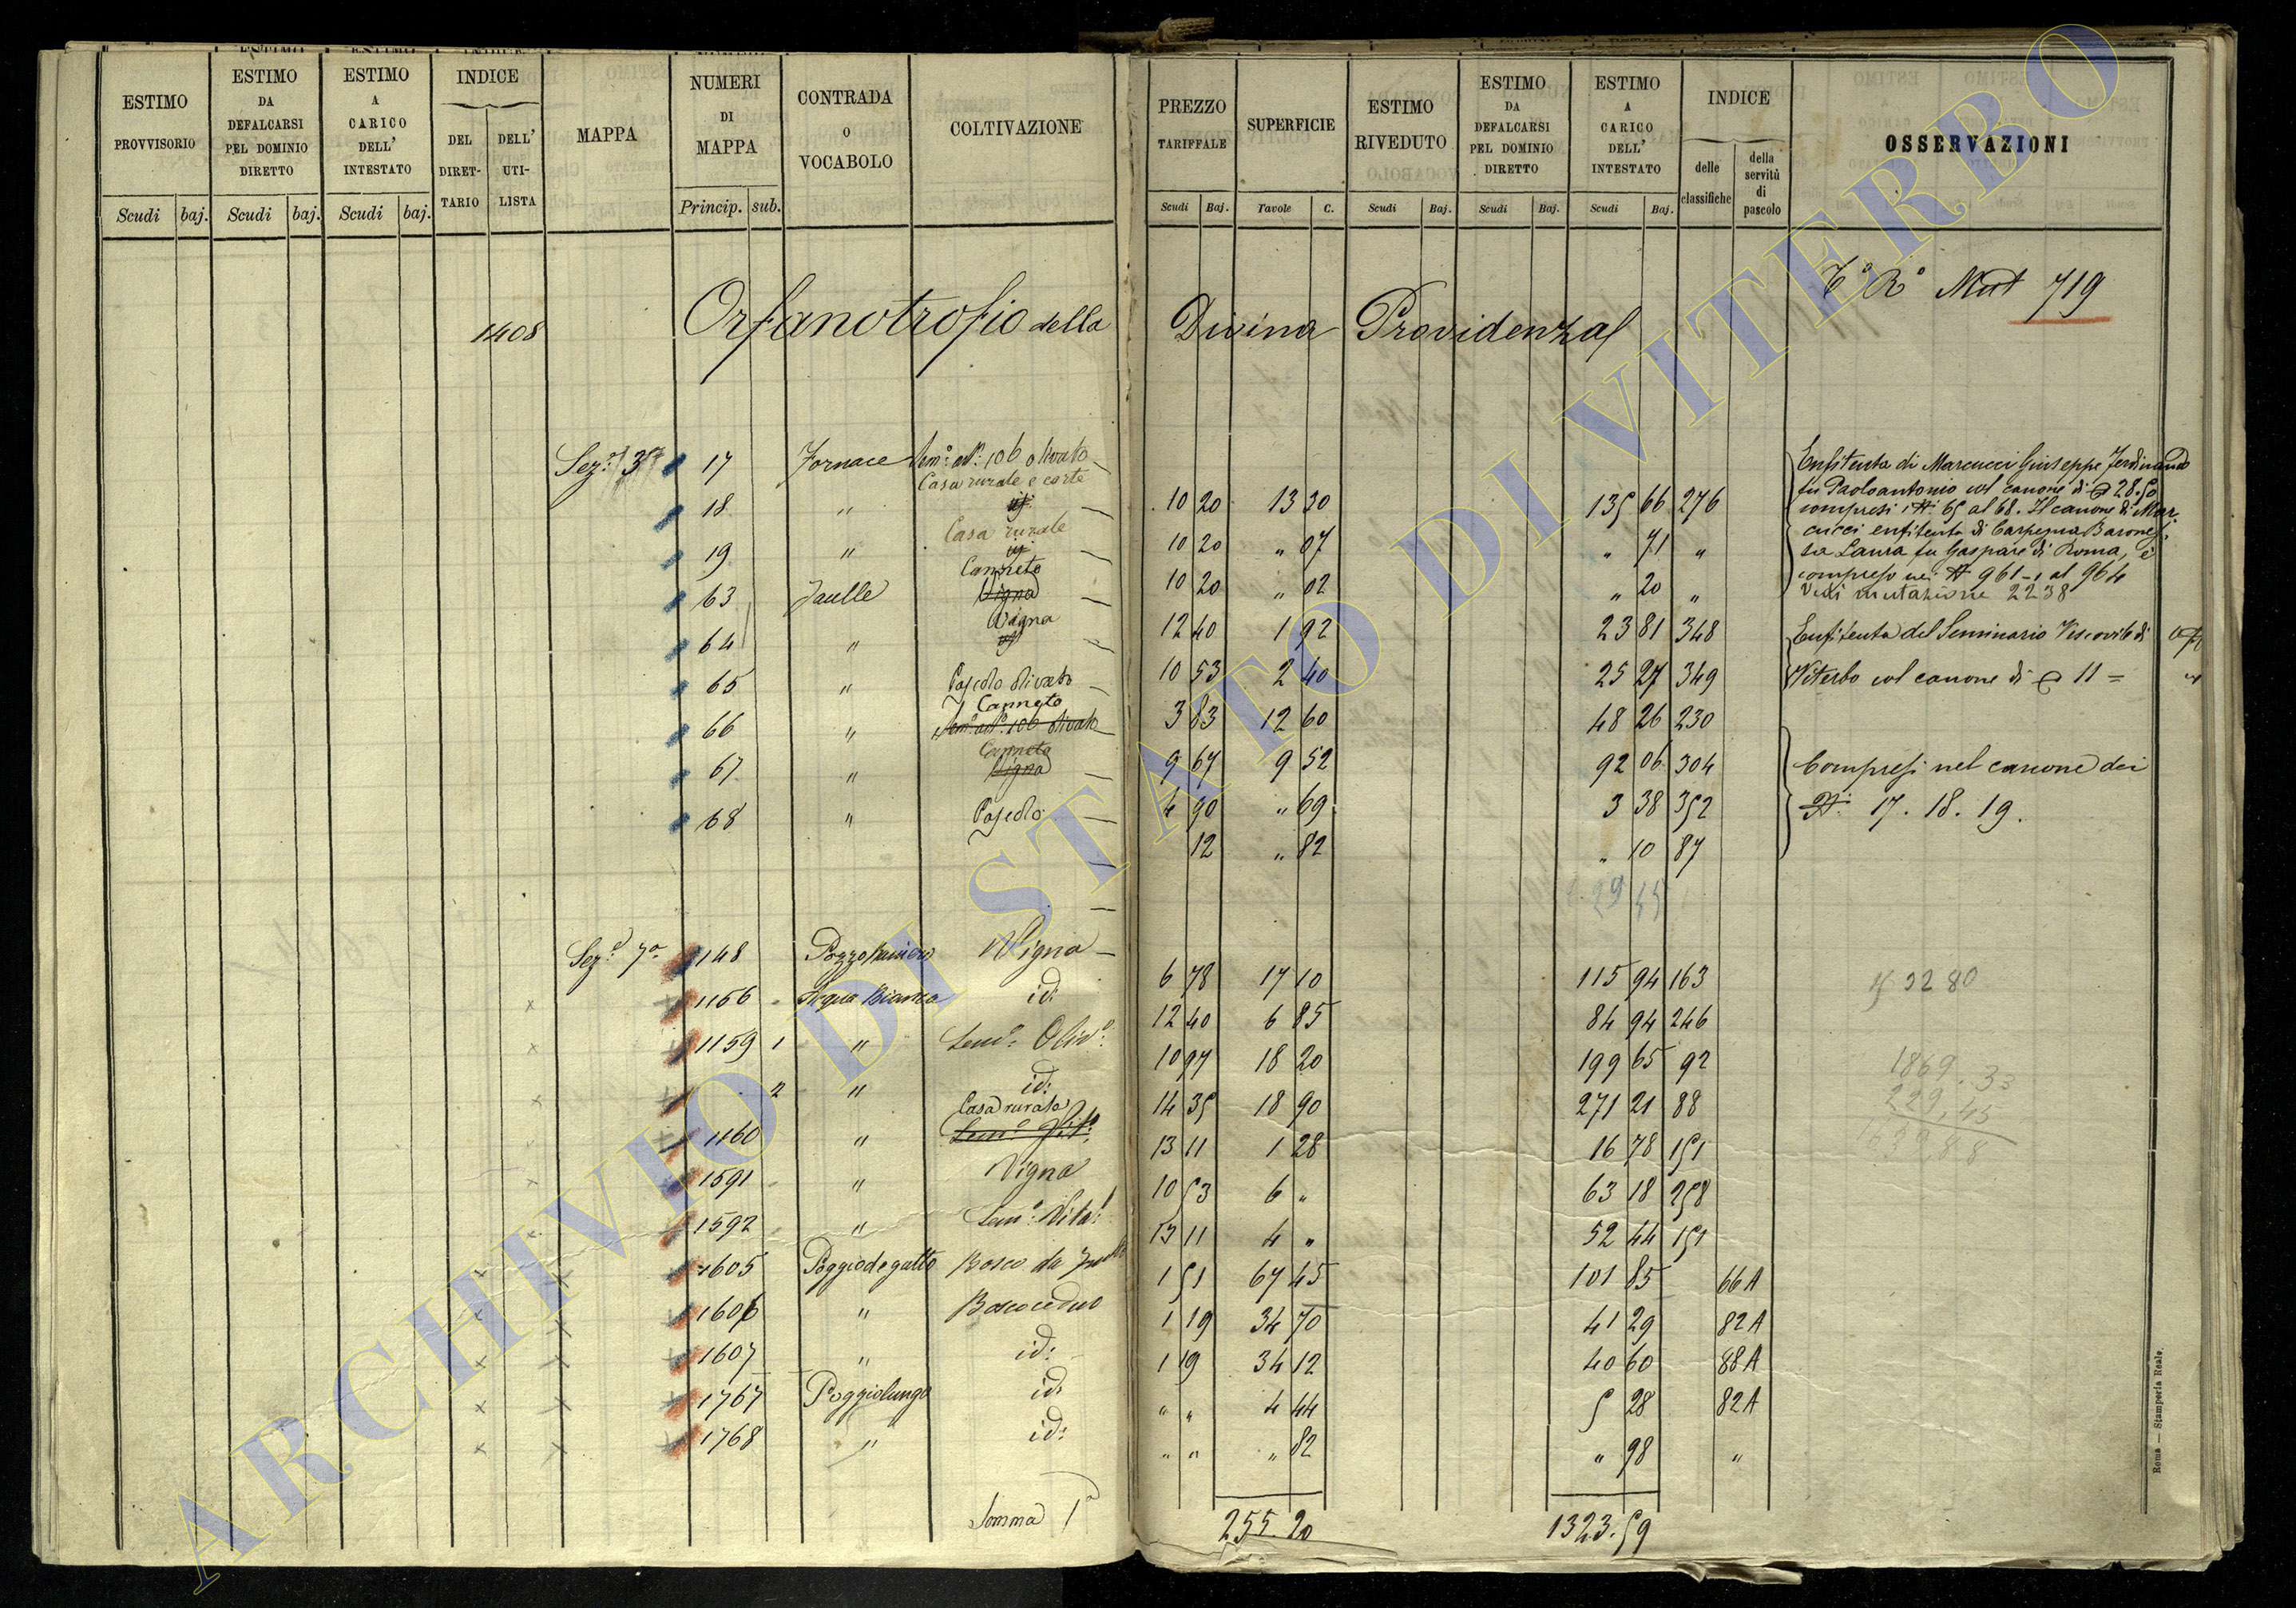 ESTIMO PROVVISORIO
Scudi baj.
ESTIMO DA DEFALCARSI PEL DOMINIO DIRETTO
Scudi baj.
ESTIMO A CARICO DELL' INTESTATO
Scudi baj.
INDICE
DEL DIRET- TARIO
DELL' UTI- LISTA
MAPPA
NUMERI DI MAPPA
Princip. sub.
CONTRADA O VOCABOLO
COLTIVAZIONE
PREZZO TARIFFALE
Scudi Baj.
SUPERFICIE
Tavole C.
ESTIMO RIVEDUTO
Scudi Baj.
ESTIMO DA DEFALCARSI PEL DOMINIO DIRETTO
Scudi Baj.
ESTIMO A CARICO DELL' INTESTATO
Scudi Baj.
INDICE
delle classifiche
della servitù di pascolo
OSSERVAZIONI
Mut 719
1408 Orfanotrofio della Divina Providenza
Sez: 3ª 17 Fornace olivato 10 20 13 30 135 66 276
Casa rurale e corte
18 " 10 20 " 07 " 71 "
Casa rurale
19 " 10 20 " 02 " 20 "
Canneto
63 Jaulle Vigna 12 40 1 92 23 81 348
Vigna
64 " 10 53 2 40 25 27 349
65 " Pascolo olivato 3 83 12 60 48 26 230
Canneto
66 " 9 67 9 52 92 06 304
Canneto
67 " Vigna 4 90 " 69 3 38 352
68 " Pascolo 12 " 82 " 10 87
Enfiteuta di Marcucci Giuseppe Ferdinando
fu Paoloantonio col canone di 28.50
compresi i Ni 65 al 68. Il canone di Mar-
cucci enfiteuta di Carpegna Barones-
sa Laura fu Gaspare di Roma, è
compreso nei N 961-1 al 964
Vedi mutazione 2238
Enfiteuta del Seminario Vescovile di
Viterbo col canone di 11 =
Compresi nel canone dei
Ni 17. 18. 19.
29 45
Sez: 7a 1148 Vigna 6 78 17 10 115 94 163
1156 Acqua Bianca id: 12 40 6 85 84 94 246
1159 1 " Sem: Oliv: 10 97 18 20 199 65 92
2 " id: 14 35 18 90 271 21 88
Casa rurale
1160 " 13 11 1 28 16 78 151
1591 " Vigna 10 53 6 " 63 18 258
1592 " Sem: Vita: 13 11 4 " 52 44 151
1605 Poggiodegatto Bosco da 1 51 67 45 101 85 66 A
1606 " Bosco ceduo 1 19 34 70 41 29 82 A
1607 " id: 1 19 34 12 40 60 88 A
1767 Poggiolungo id: " " 4 44 5 28 82 A
1768 " id: " " " 82 " 98 "
3280
1869.33
229.45
Somma 1a 255.20 1323.59
Roma — Stamperia Reale.
ARCHIVIO DI STATO DI VITERBO